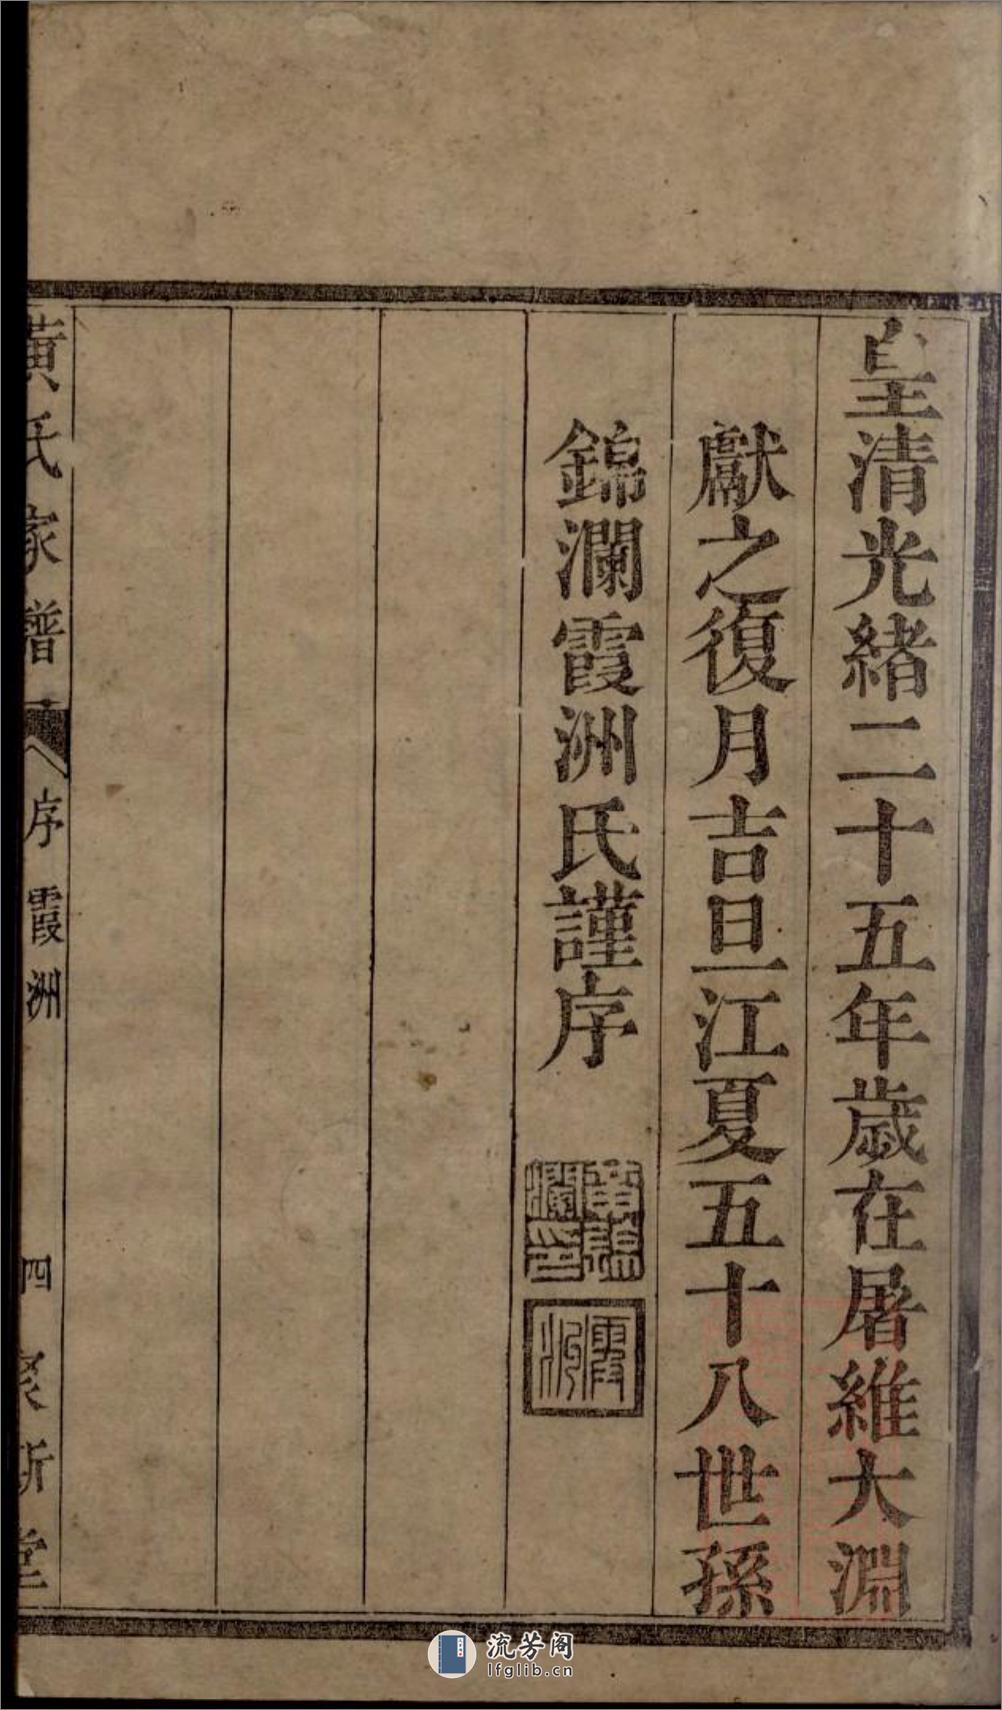 皇清光緒二十五年歲在屠維大淵
獻之復月吉旦江夏五十八世孫
錦瀾霞洲氏謹序
黃錦瀾印
霞洲
黃氏家譜
序 霞洲
四
聚斯堂
流芳阁
lfglib.cn